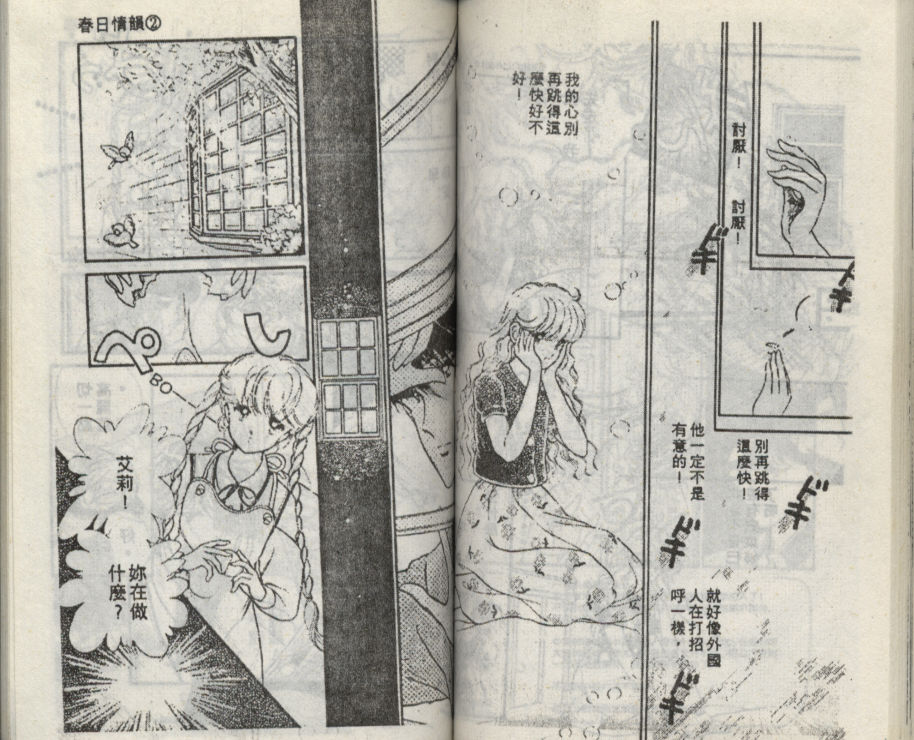 討厭！
討厭！
ドキ
ドキ
別再跳得
這麼快！
ドキ
他一定不是
有意的！
ドキ
就好像外國
人在打招
呼一樣，
ドキ
我的心別
再跳得這
麼快好不
好！
春日情韻②
ぺし
BO
艾莉！
妳在做
什麼？